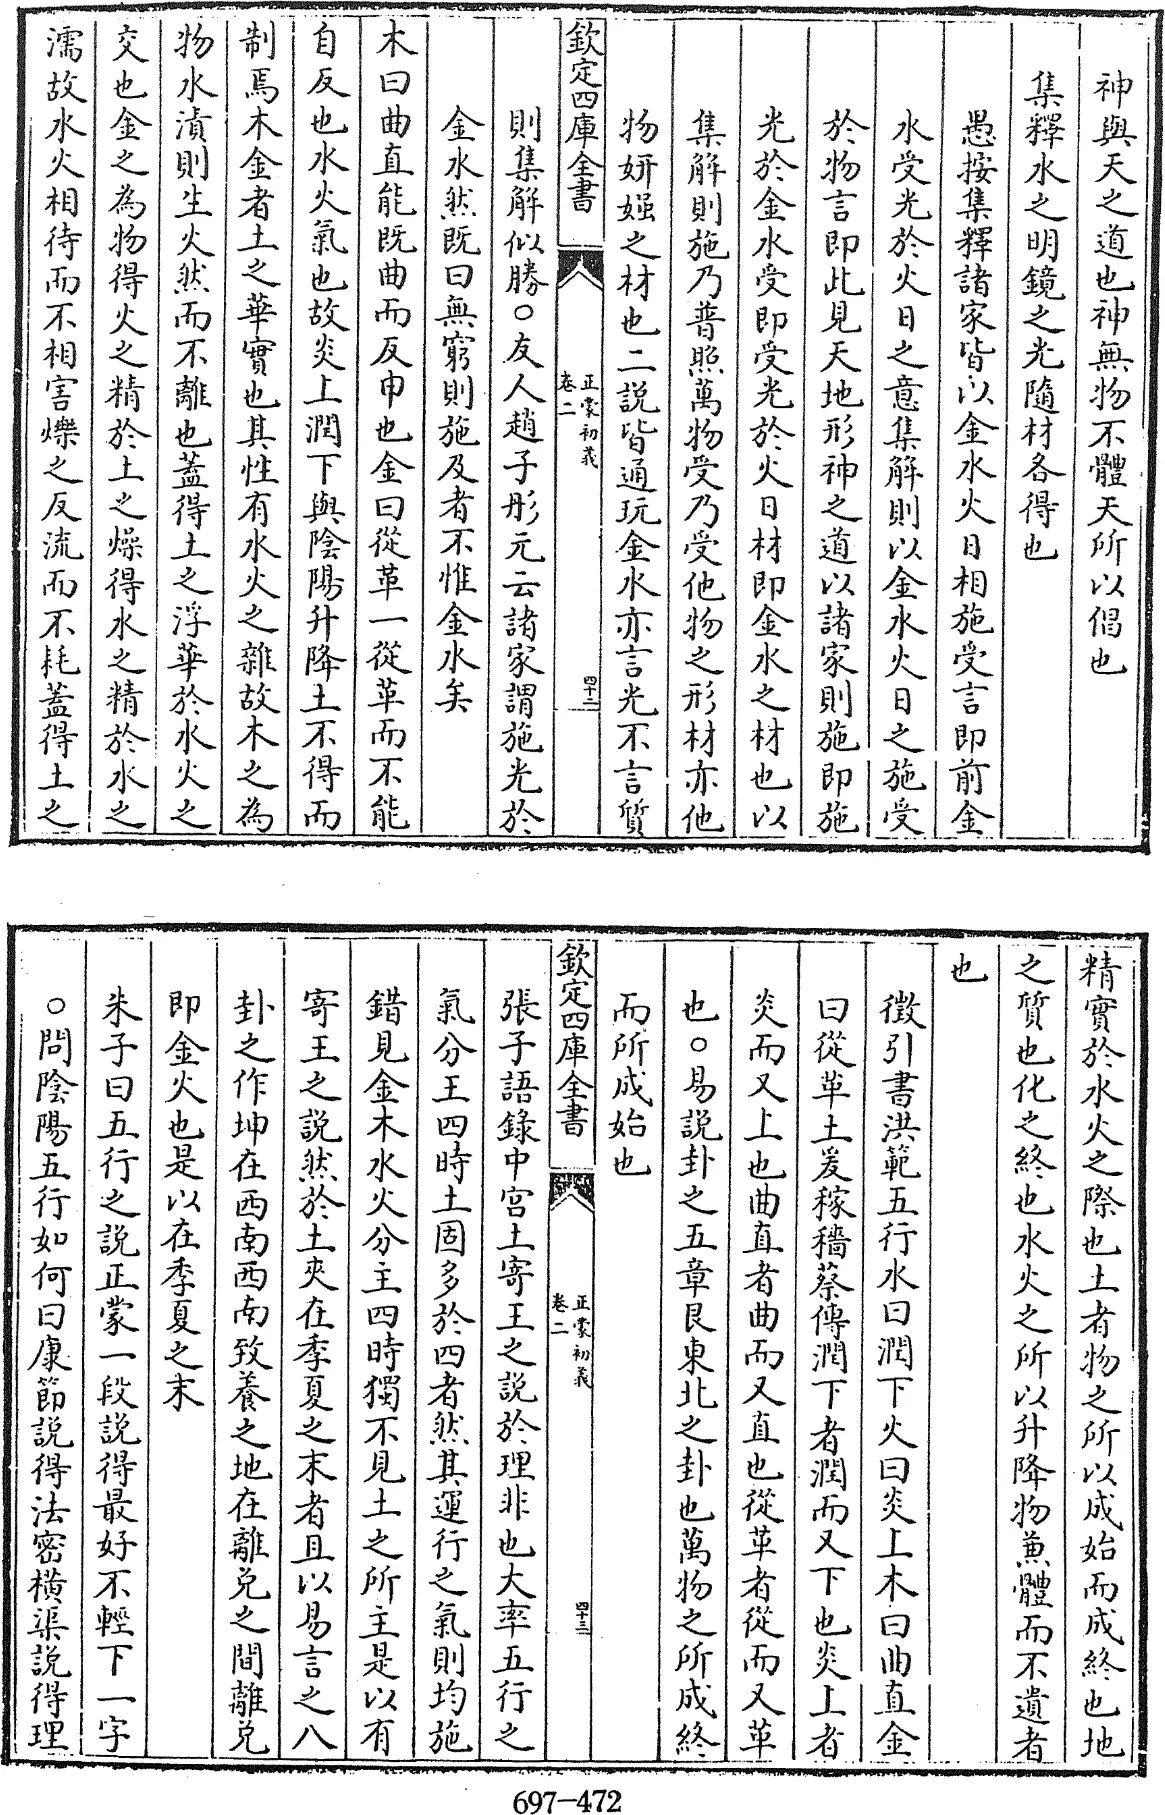 神與天之道也神無物不體天所以倡也
集釋水之明鏡之光隨材各得也
愚按集釋諸家皆以金水火日相施受言即前金
水受光於火日之意集解則以金水火日之施受
於物言即此見天地形神之道以諸家則施即施
光於金水受即受光於火日材即金水之材也以
集解則施乃普照萬物受乃受他物之形材亦他
物妍媸之材也二說皆通玩金水亦言光不言質
欽定四庫全書
正蒙初義
卷二
四十二
則集解似勝○友人趙子彤元云諸家謂施光於
金水然既曰無窮則施及者不惟金水矣
木曰曲直能既曲而反申也金曰從革一從革而不能
自反也水火氣也故炎上潤下與陰陽升降土不得而
制焉木金者土之華實也其性有水火之雜故木之為
物水漬則生火然而不離也蓋得土之浮華於水火之
交也金之為物得火之精於土之燥得水之精於水之
濡故水火相待而不相害爍之反流而不耗蓋得土之
精實於水火之際也土者物之所以成始而成終也地
之質也化之終也水火之所以升降物兼體而不遺者
也
徵引書洪範五行水曰潤下火曰炎上木曰曲直金
曰從革土爰稼穡蔡傳潤下者潤而又下也炎上者
炎而又上也曲直者曲而又直也從革者從而又革
也○易說卦之五章艮東北之卦也萬物之所成終
而所成始也
欽定四庫全書
正蒙初義
卷二
四十三
張子語錄中宮土寄王之說於理非也大率五行之
氣分王四時土固多於四者然其運行之氣則均施
錯見金木水火分主四時獨不見土之所主是以有
寄王之說然於土夾在季夏之末者且以易言之八
卦之作坤在西南西南致養之地在離兌之間離兌
即金火也是以在季夏之末
朱子曰五行之說正蒙一段說得最好不輕下一字
○問陰陽五行如何曰康節說得法密橫渠說得理
697-472